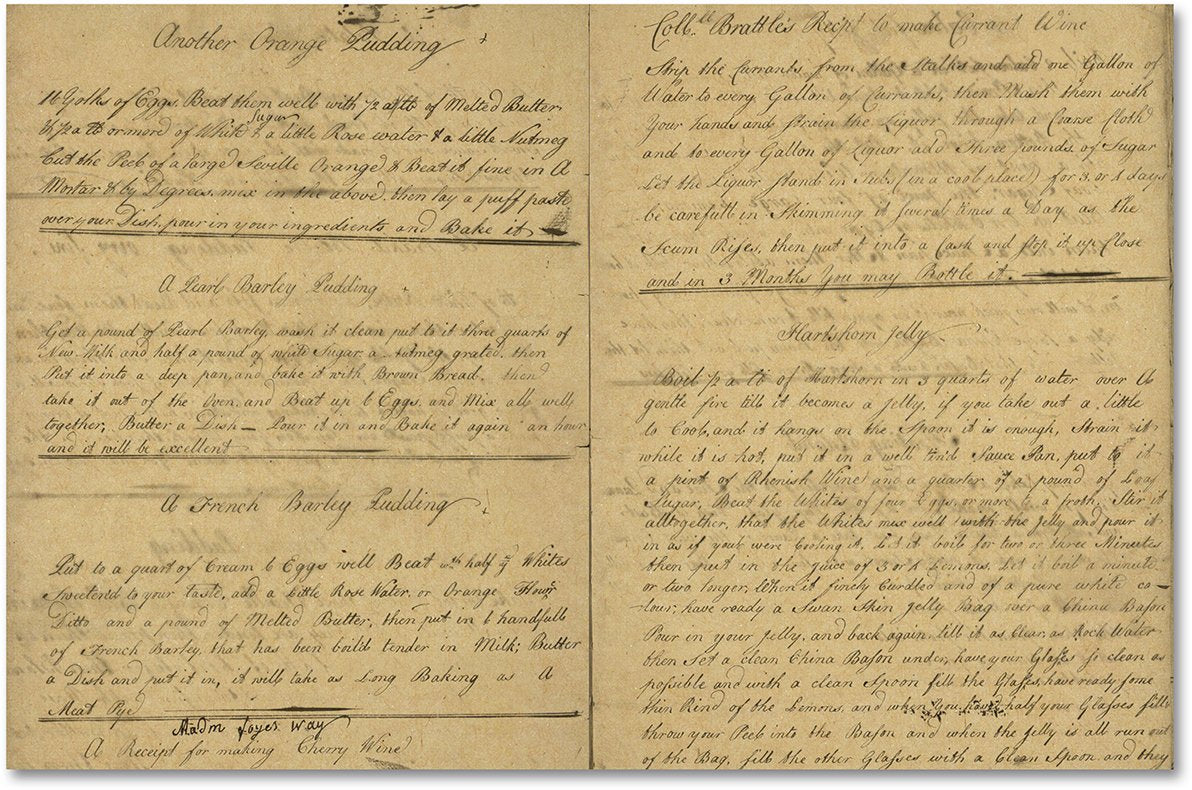 Another Orange Pudding
16 Yolks of Eggs. Beat them well with 1/2 a lb of Melted Butter
& 1/2 a lb or more of White Sugar & a little Rose water & a little Nutmeg
Cut the Peel of a large Seville Orange & Beat it fine in A
Mortar & by Degrees mix in the above, then lay a puff paste
over your Dish, pour in your ingredients and Bake it
A Pearl Barley Pudding
Get a pound of Pearl Barley, wash it clean put to it three quarts of
New Milk and half a pound of white Sugar a nutmeg grated, then
Put it into a deep pan, and bake it with Brown Bread. then
take it out of the Oven, and Beat up 6 Eggs, and Mix all well
together, Butter a Dish — Pour it in and Bake it again an hour
and it will be excellent
A French Barley Pudding
Put to a quart of Cream 6 Eggs well Beat wth half ye Whites
Sweetend to your taste, add a Little Rose Water, or Orange Flowr
Ditto and a pound of Melted Butter, then put in 6 handfulls
of French Barley, that has been boild tender in Milk; Butter
a Dish and put it in, it will take as Long Baking as A
Meat Pye
Madm Way
A Receipt for making Cherry Wine
Coll. Brattle's Recipt to make Currant Wine
Strip the Currants from the Stalks and add one Gallon of
Water to every Gallon of Currants, then Mash them with
Your hands and strain the Liquor through a Coarse Cloth
and to every Gallon of Liquor add Three pounds of Sugar
Let the Liquor stand in Tubs (in a cool place) for 3 or 4 days
be carefull in Skimming it several times a Day as the
Scum Rises, then put it into a Cask and stop it up Close
and in 3 Months You may Bottle it.
Hartshorn Jelly
Boil 1/2 a lb of Hartshorn in 3 quarts of water over A
gentle fire till it becomes a Jelly, if you take out a little
to Cool, and it hangs on the Spoon it is enough, Strain it
while it is hot, put it in a well tin'd Sauce Pan, put to it
a pint of Rhenish Wine and a quarter of a pound of Loaf
Sugar, Beat the Whites of four Eggs, or more to a froth, Stir it
alltogether, that the Whites mix well with the Jelly and pour it
in as if you were Cooling it, Let it boil for two or three Minutes
then put in the Juice of 3 or 4 Lemons, Let it boil a minute
or two longer, When it finely Curdled and of a pure white co-
lour, have ready a Swan Skin Jelly Bag over a China Bason
Pour in your Jelly, and back again, till it as Clear, as Rock Water
then set a clean China Bason under, have your Glasses so clean as
possible and with a clean Spoon fill the Glasses, have ready some
thin Rind of the Lemons, and when you have half your Glasses fill'd
throw your Peel into the Bason and when the Jelly is all run out
of the Bag, fill the other Glasses with a Clean Spoon and they